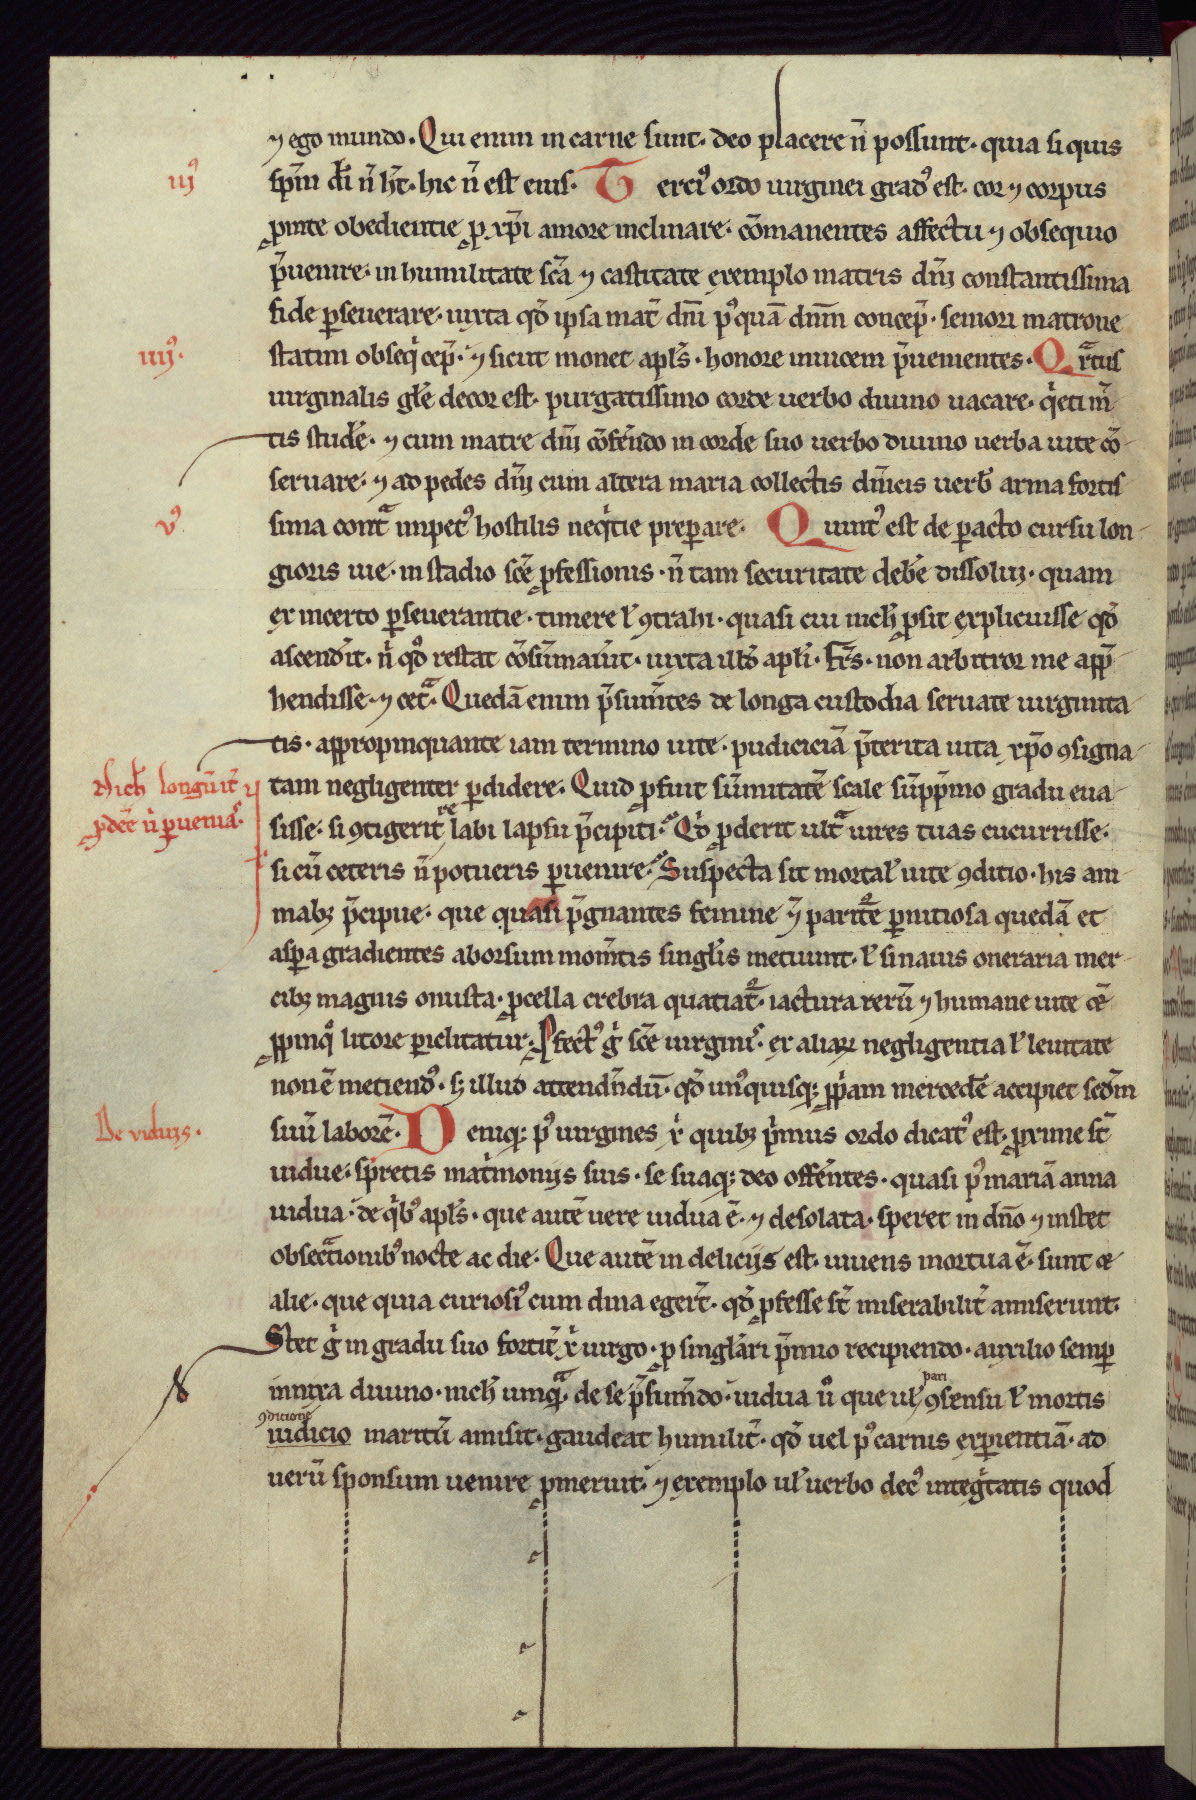 ⁊ ego mundo. Qui enim in carne sunt. deo placere n̄ possunt. quia si quis
iij⁹
sp̄m di̅ n̄ h̄t. hic n̄ est eius. Terci⁹ ordo uirginei grad⁹ est. cor ⁊ corpus
ꝓmte obedientie ꝓ xp̄i amore inclinare. cōmanentes affectu ⁊ obsequio
p̄uenire. in humilitate scā ⁊ castitate exemplo matris dn̄i constantissima
fide ꝑseuerare. iuxta qd̄ ipsa mat̄ dn̄i p⁹quā dn̄m concep̄. seniori matrone
iiij⁹.
statim obseqͥ cep̄. ⁊ sicut monet apl̄s. honore inuicem p̄uenientes. Qͣrtus
uirginalis gl̄e decor est. purgatissimo corde uerbo diuino uacare. qͥeti m̄
tis studē. ⁊ cum matre dn̄i cōferēndo in corde suo uerbo diuino uerba uite cō
seruare. ⁊ ad pedes dn̄i cum altera maria collectis dn̄icis uerb̄ arma fortis
v⁹
sima contͣ impet⁹ hostilis neqͥtie preꝑare. Quint⁹ est de ꝑacto cursu lon
gioris uie. in stadio scē ꝓfessionis. n̄ tam securitate deb̄e dissolui. quam
ex incerto ꝑseuerantie. timere l̄ ꝯtrahi. quasi cui nich̄ ꝓsit explicuisse qd̄
ascend̄it. nͥ qd̄ restat cōsūmau̅it. iuxta ill̄d apl̄i. Fr̄s. non arbitror me app̄
hendisse. ⁊ cetͣ. Quedā enim p̄sum̄tes de longa custodia seruate uirginita
tis. appropinquante iam termino uite. pudiciciā p̄terita uita xp̄o ꝯsigna
Nich̄ longū it̄
ꝓdēt nͥ ꝑueniaſ.
tam negligenter ꝑdidere. Quid ꝓfuit sūmitatē scale sūp̄mo gradu eua
sisse. si ꝯtigerit te labi lapsu p̄cipiti. Qͥd ꝓderit ultͣ uires tuas cucurrisse.
si cū ceteris n̄ potueris ꝑuenire. Suspecta sit mortal̄ uite ꝯditio. his ani
mabꝫ p̄cipue. que quasi p̄gnantes femine ⁊ ꝑnitiosa quedā et
asꝑa gradientes aborsum mom̄tis singl̄is metuunt. l̄ si nauis oneraria mer
cibꝫ magnis onusta. ꝓcella crebra quatiat̄. iactura rerū ⁊ humane uite cē
ꝓpinqͦ litore ꝑiclitatur. ꝓfect⁹ gͥ scē uirginis. ex aliaꝝ negligentia l̄ leuitate
non ē metiend⁹. sꝫ illud attendēndū. qd̄ un⁹quisqꝫ ꝓpͥam mercedē accipiet scd̄m
De viduis.
suū laborē. Deniqꝫ p⁹ uirgines xͥ quibꝫ pͥmus ordo dicat⁹ est. ꝓxime st̄
uidue. spretis matͥmoniis suis. se suaqꝫ deo offer̄tes. quasi p⁹ mariā anna
uidua. de qͥb⁹ apl̄s. que autē uere uidua ē. ⁊ desolata. speret in dn̄o ⁊ instet
obsectͣionib⁹ nocte ac die. Que autē in deliciis est. uiuens mortua ē. sunt ⁊
alie. que quia curiosi⁹ cum dina eger̄t. qd̄ ꝓfesse st̄ miserabilit̄ amiserunt.
Stet gͥ in gradu suo fortit̄ xͥ uirgo. ꝓ singl̄ari p̄mio recipiendo. auxilio semꝑ
innixa diuino. nich̄ umqͣ. de se p̄sum̄do. uidua u⁰ que ul̄ pari ꝯsensu l̄ mortis
ꝯdicione
iudicio maritū amisit. gaudeat humilit̄. qd̄ uel p⁹ carnis exꝑientiā. ad
uerū sponsum uenire ꝓmeruit. ⁊ exemplo ul̄ uerbo dec⁹ integͥtatis quod